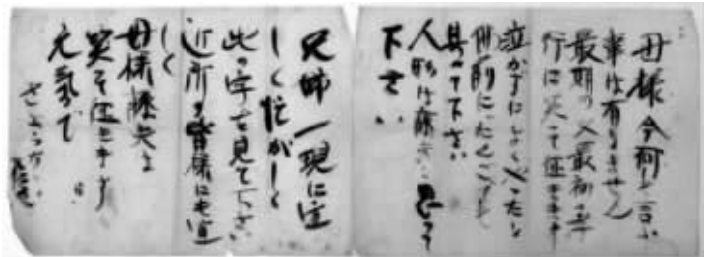 母様今何も言ふ
事は有りません
最期の又最初の孝
行に笑って征きます
泣かずによくやったと
仏前に
具へて下さい
人形は と思って
下さい
兄姉 に宜
しく忙がしく
此の字を見て下さい
近所の皆様にも宜
しく
母様 は
笑って征きます
元気で
さようなら